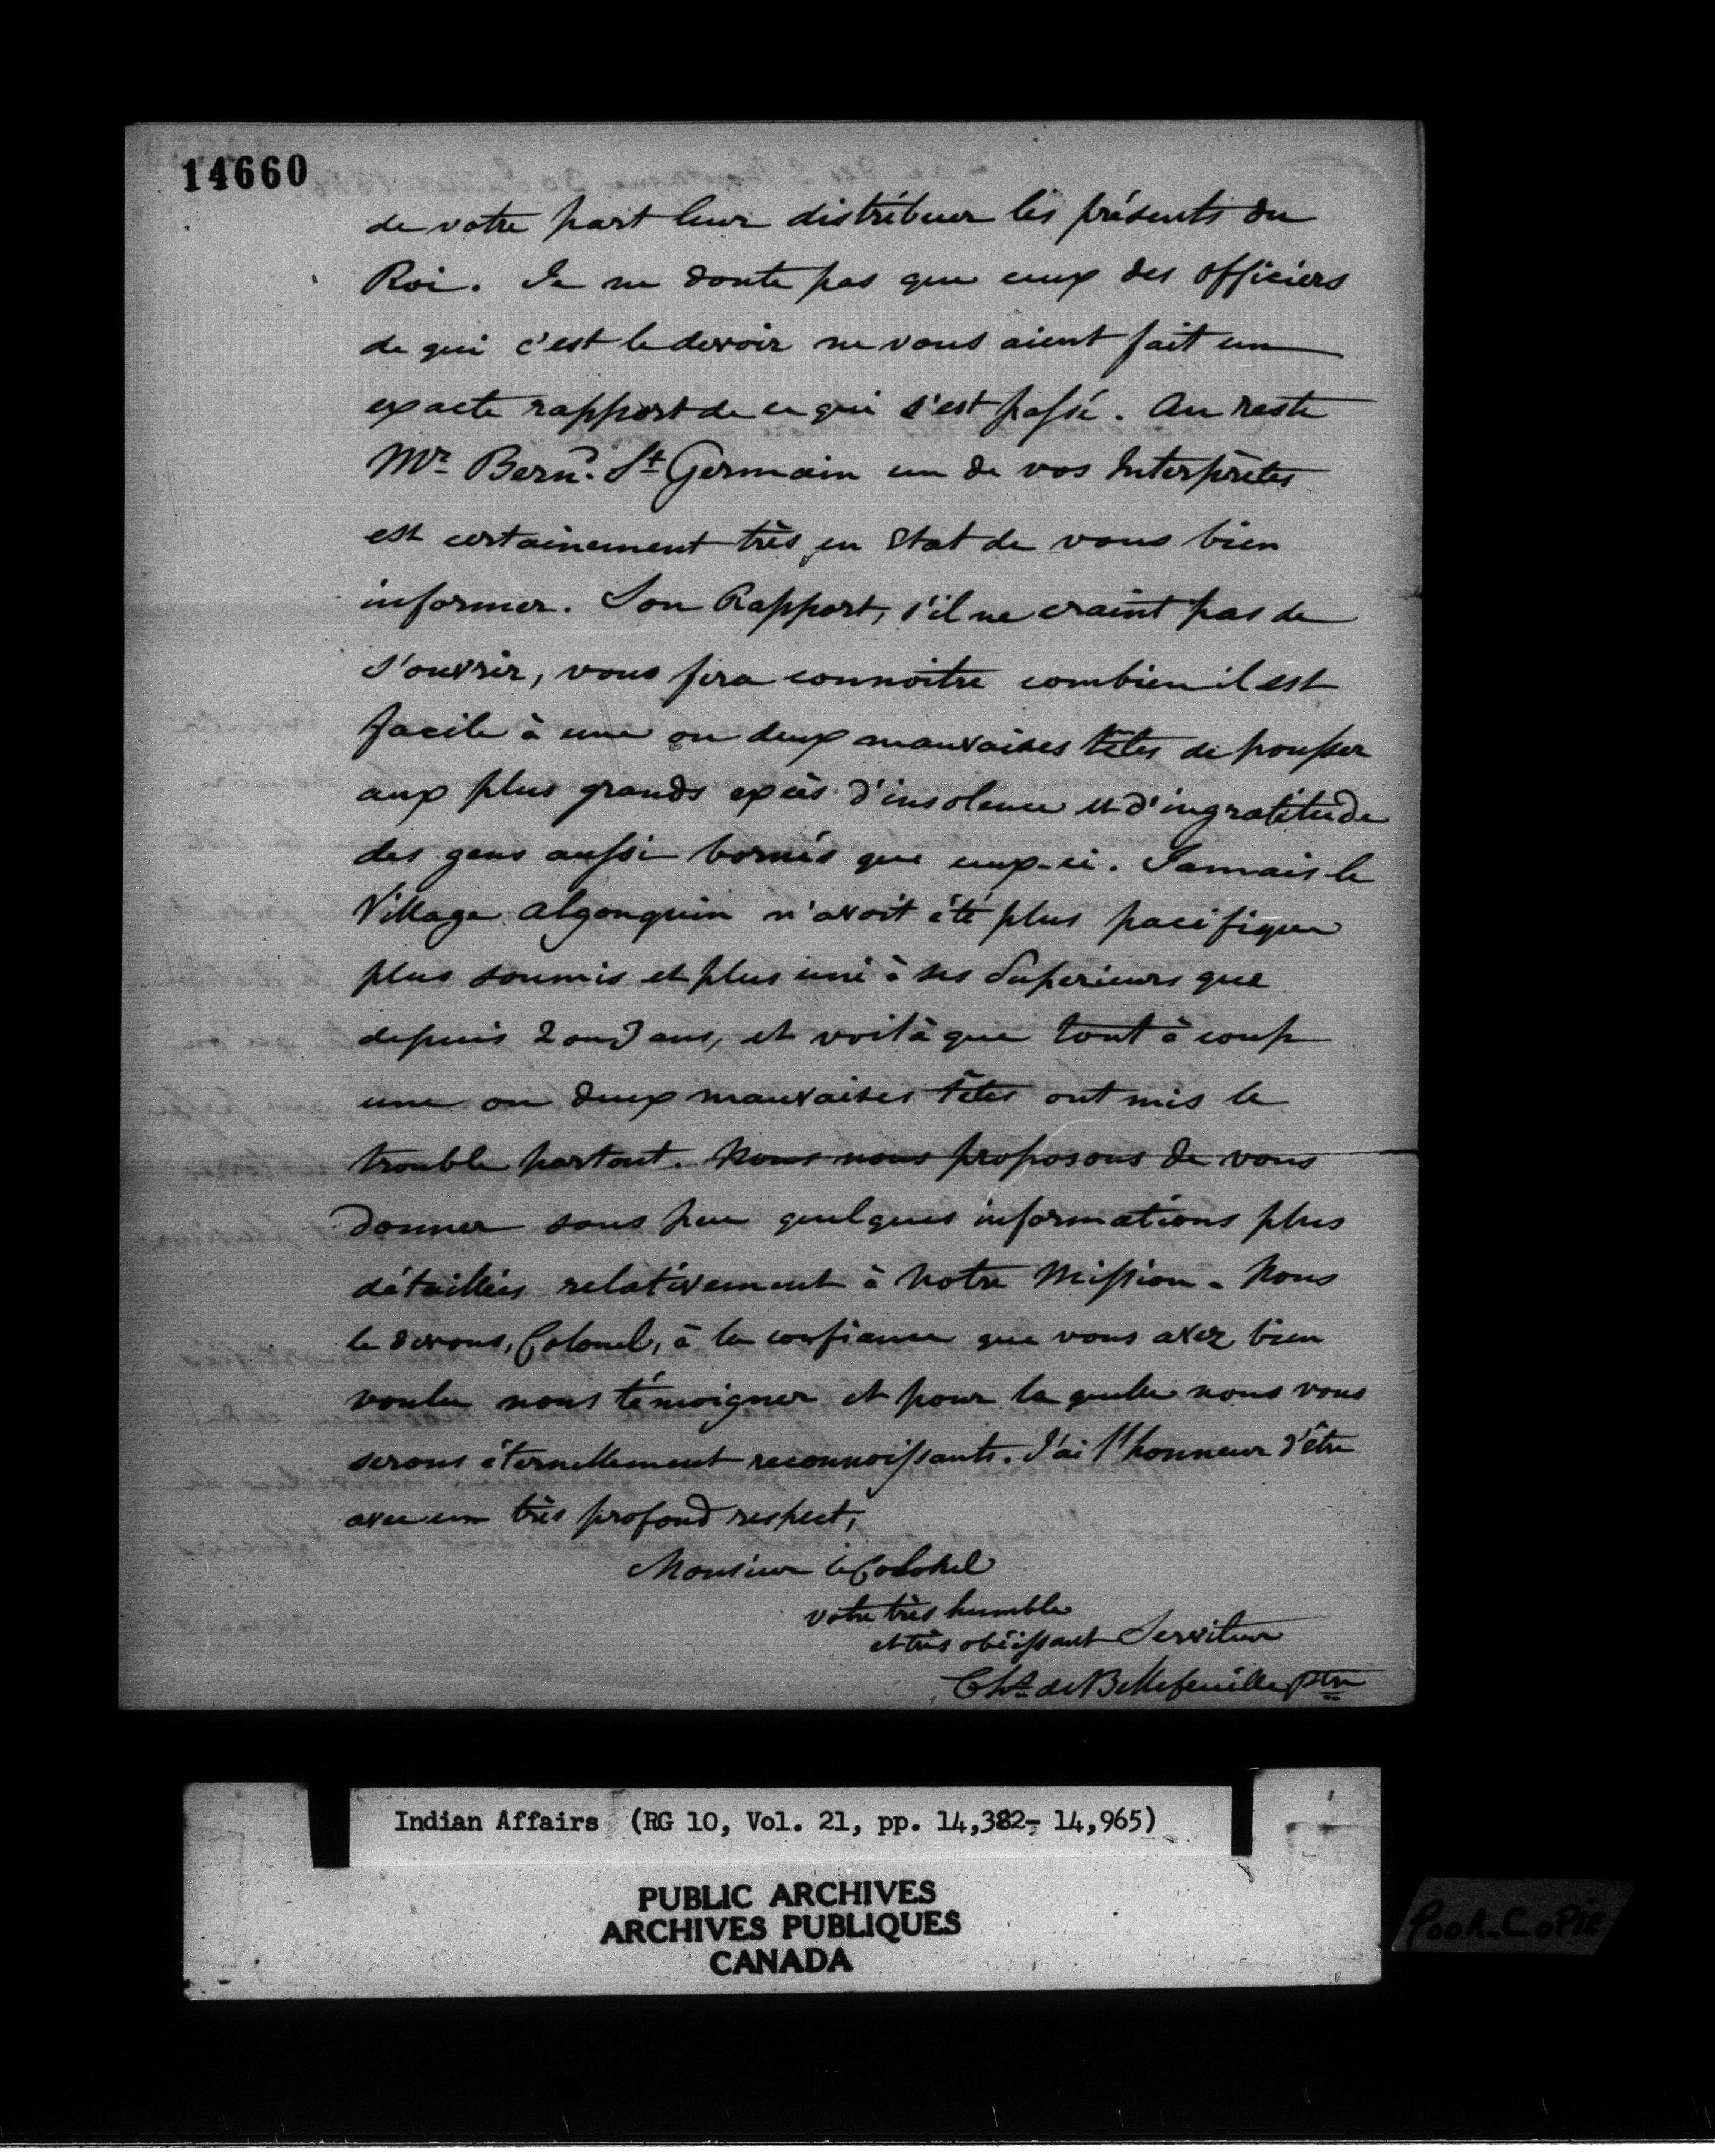 14660
de votre part leur distribuer les présents du
Roi. Je ne doute pas que ceux des officiers
de qui c'est le devoir ne vous aient fait un
exacte rapport de ce qui s'est passé. Au reste
Mr Bernd. St Germain un de vos Interprètes
est certainement très en état de vous bien
informer. Son Rapport, s'il ne craint pas de
s'ouvrir, vous fera connoitre combien il est
facile à une ou deux mauvaises têtes de pousser
aux plus grands excès d'insolence et d'ingratitude
des gens aussi bornés que ceux-ci. Jamais le
Village algonquin n'avoit été plus pacifique
plus soumis et plus uni à ses Superieurs que
depuis 2 ou 3 ans, et voilà que tout à coup
une ou deux mauvaises têtes ont mis le
trouble partout. Nous nous proposons de vous
donner sous peu quelques informations plus
détaillées relativement à notre Mission. Nous
le devons, Colonel, à la confiance que vous avez bien
voulu nous témoigner et pour la quelle nous vous
serons éternellement reconnoissants. J'ai l'honneur d'être
avec un très profond respect,
Monsieur le Colonel
votre très humble
et très obéissant Serviteur
Chs. de Bellefeuille ptre
Indian Affairs (RG 10, Vol. 21, pp. 14,382- 14,965)
PUBLIC ARCHIVES
ARCHIVES PUBLIQUES
CANADA
POOR-COPIE